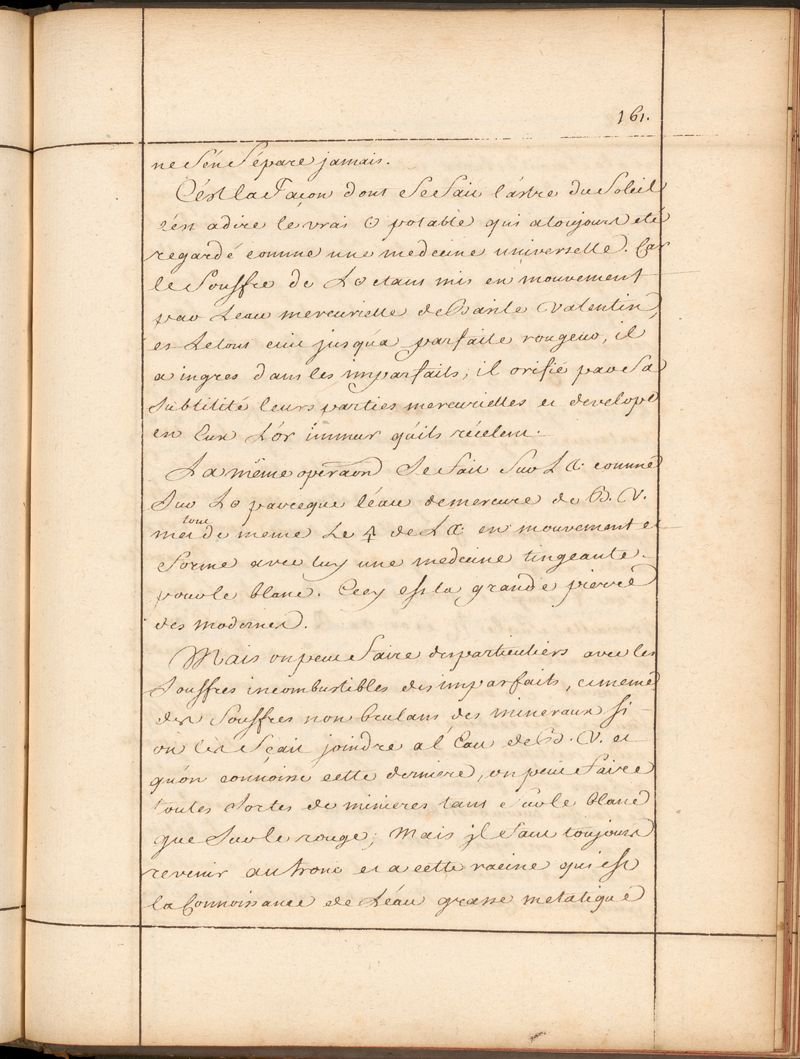 161.
ne s'én sépare jamais.
C'ést la Façon dont se Fait l'ástre du Soleil
c'én adire le vrai ☉ potable qui a toujours eté
regardé comme une medecine universelle. Car
le Souffre de L☉ etant mis en mouvement
par L'eau mercurielle de Basile Valentin,
et Le tout cuit jusqu'a parfaite rougeur, il
a ingres dans les imparfaits, il orifie par Sa
Subtilité leurs parties mercurielles et develope
en Eux L'ór immur qu'ils récelent.
La même operaon se fait sur L☾ comme
sur L☉ parceque l'éau de mercure de B. V.
met tout de meme Le 🜍 de L☾ en mouvement et
Forme avec luy une medecine tingeante
pour le blanc. Cecy est la grande pierre
des modernes.
Mais on peut faire des particuliers avec les
Souffres incombustibles des imparfaits, et meme
des Souffres non brulans des mineraux si
on les Sçait joindre a l'Eau de B. V. et
qu'ón connoisse cette derniere, on peut Faire
toutes Sortes de minieres tant sur le blanc
que sur le rouge; Mais jl faut toujours
revenir au tronc et a cette racine qui est
la Connoissance de L'éau grasse metalique